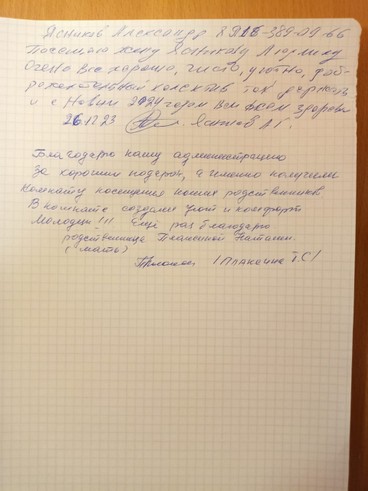 Ясников Александр 8 918-389-09-66
Посетил жену Ясникову Людмилу
Очень все хорошо, чисто, уютно, доб-
режелательный колектив так держать
и с Новым 2024 годом Вам всем здоровья
26.12.23 Ясников А Г.
Благодарю нашу администрацию
за хороший подарок, а именно получили
комнату посещения наших родственников
В комнате создали уют и комфорт
Молодцы!!! Ещё раз благодарю
родственница Плаксиной Наталии.
(мать)
/Плаксина Т.С/